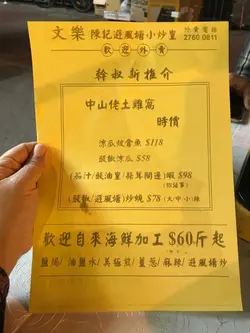 文樂 陳記避風塘小炒皇
外賣電話
2760 0811
歡迎外賣
幹叔新推介
中山佬土雞窩
時價
涼瓜炆會魚 $118
豉椒涼瓜 $58
(茄汁/豉油皇/蒜茸開邊)蝦 $98
(豉椒/避風塘)炒蜆 $78 (大/中/小)辣
歡迎自來海鮮加工 $60斤起
鹽焗/油鹽水/美極煎/薑葱/麻辣/避風塘炒